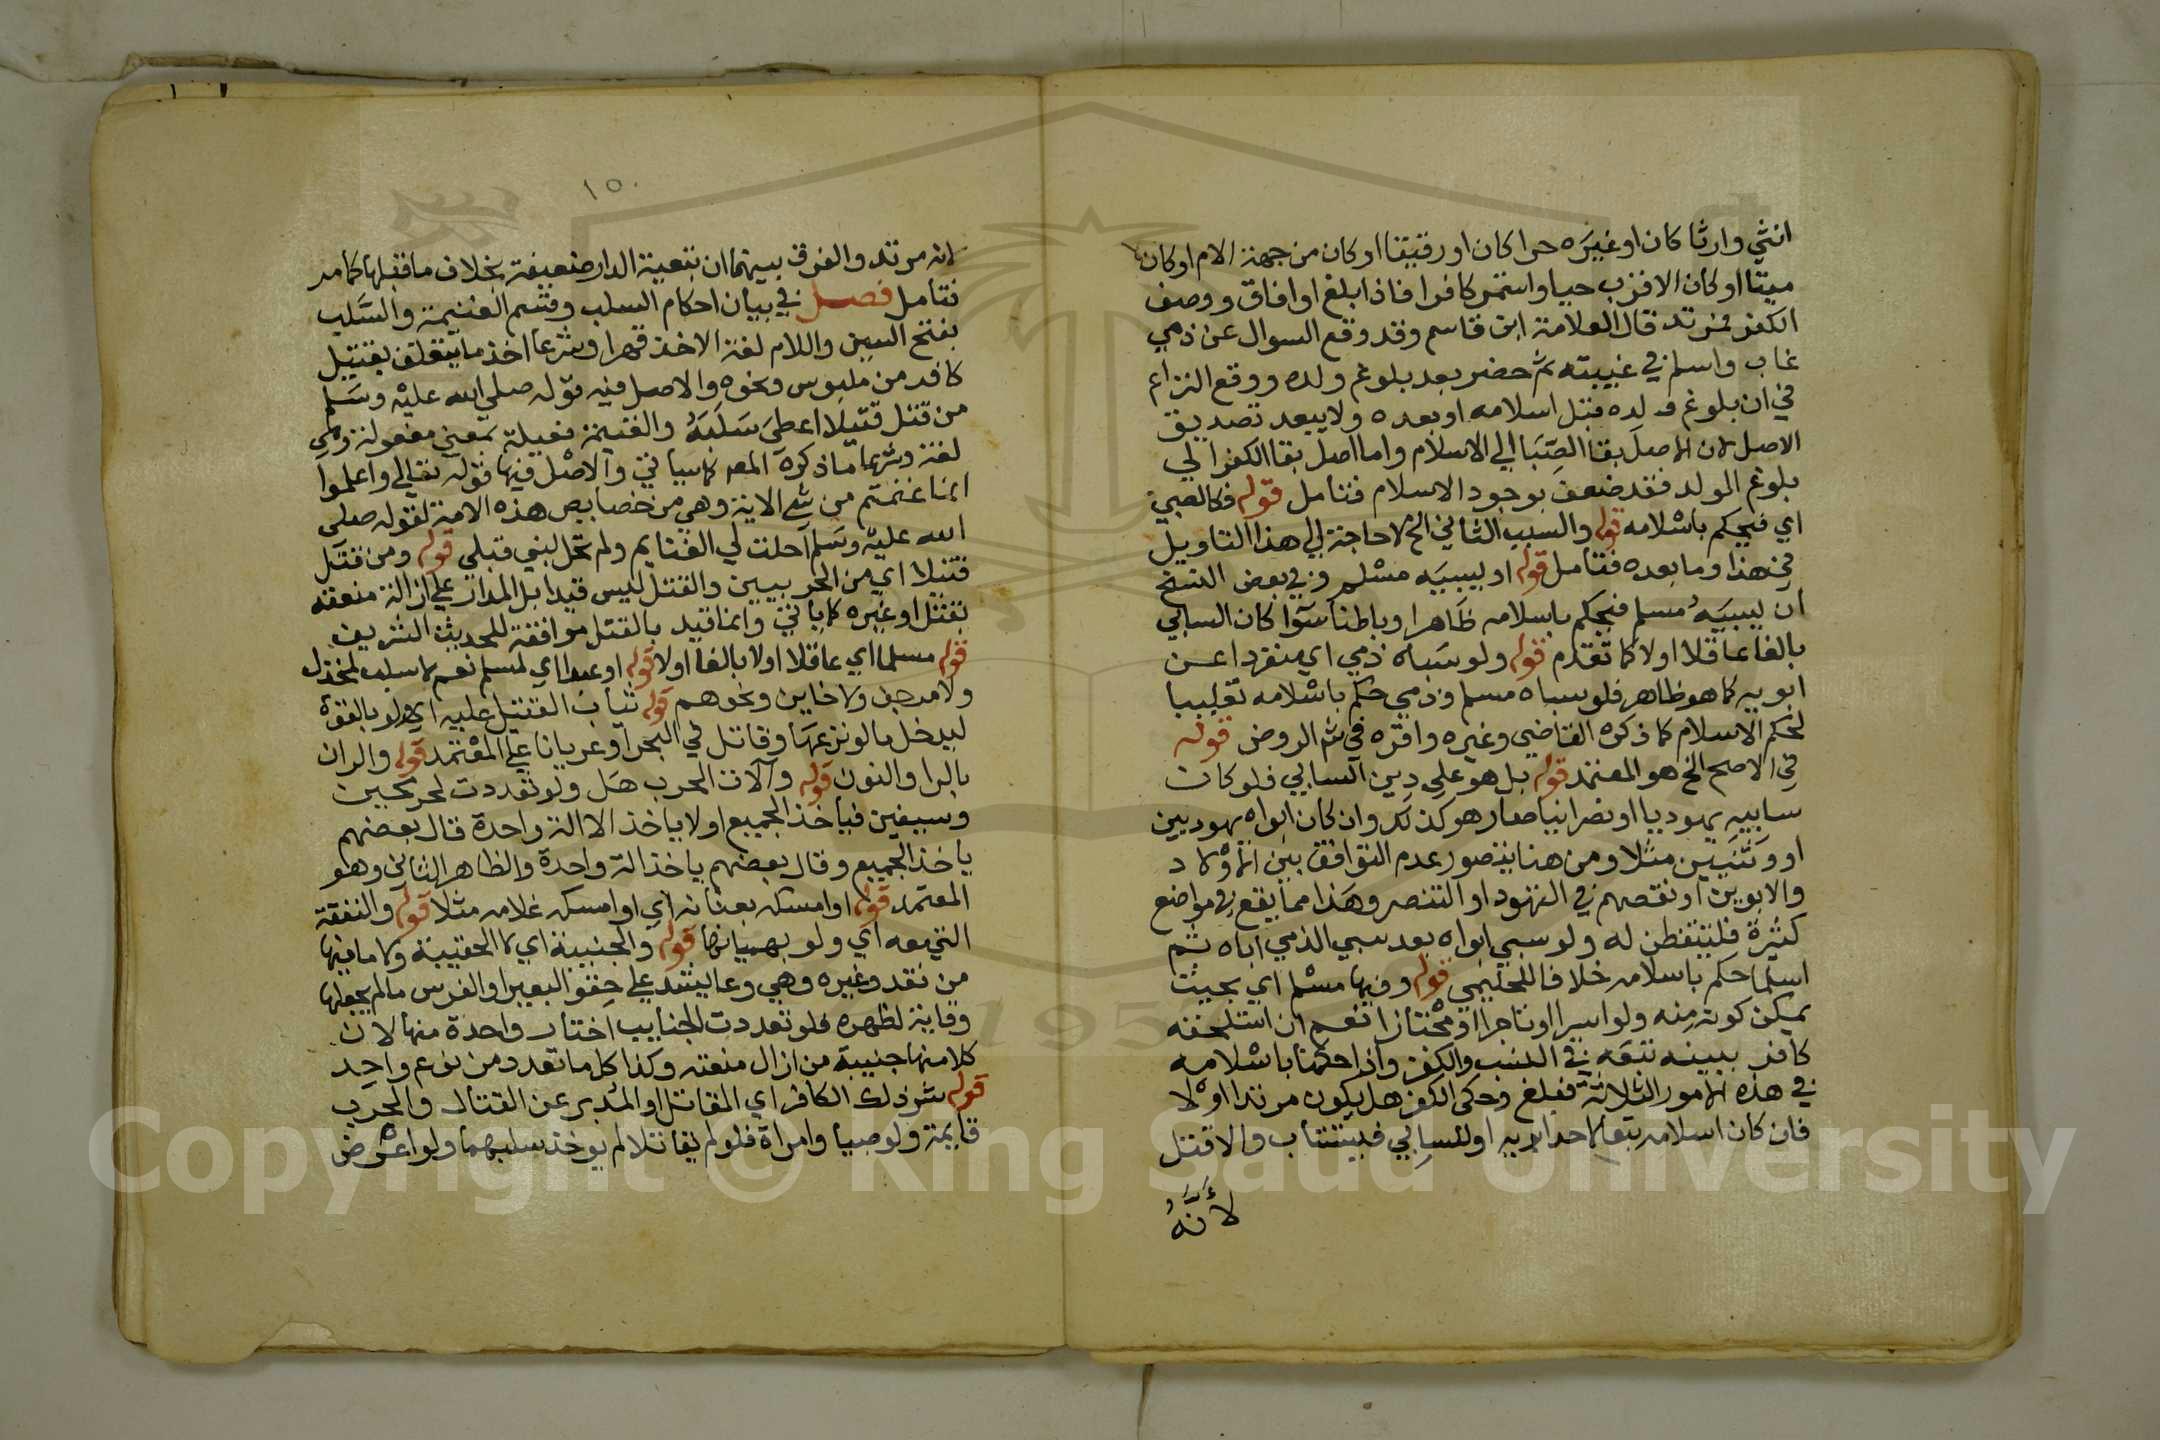 انثي وارثا كان او غيره حرا كان او رقيقا او كان من جهة الام او كان
ميتا او كان الاقرب حيا واستمر كافرا فاذا بلغ او افاق ووصف
الكفر فمرتد قال العلامة ابن قاسم وقد وقع السوال عن ذمي
غاب واسلم في غيبته ثم حضر بعد بلوغ ولده ووقع النزاع
في ان بلوغ ولده قبل اسلامه او بعده ولا يبعد تصديق
الاصل لان الاصل بقا الصبا الي الاسلام واما اصل بقا الكفر الي
بلوغ الولد فقد ضعف بوجود الاسلام فتامل قوله فكالصبي
اي فيحكم باسلامه قوله والسبب الثاني الخ لا حاجة الي هذا التاويل
في هذا وما بعده فتامل قوله او يسبيه مسلم وفي بعض النسخ
ان يسبيه مسلم فيحكم باسلامه ظاهرا وباطنا سوا كان السابي
بالغا عاقلا اولا كما تقدم قوله ولو سباه ذمي اي منفردا عن
ابويه كما هو ظاهر فلو سباه مسلم وذمي حكم باسلامه تغليبا
لحكم الاسلام كما ذكره القاضي وغيره واقره في شم الروض قوله
في الاصح الخ هو المعتمد قوله بل هو علي دين السابي فلو كان
سابيه يهوديا او نصرانيا صار هو كذلك وان كان ابواه يهوديين
او وثنيين مثلا ومن هنا يتصور عدم التوافق بين الاولاد
والابوين او نقصهم في التهود او التنصر وهذا مما يقع في مواضع
كثيرة فليتفطن له ولو سبي ابواه بعد سبي الذمي اياه ثم
اسلما حكم باسلامه خلافا للحليمي قوله وفيها مسلم اي بحيث
يمكن كونه منه ولو اسيرا او تاجرا او مجتازا نعم ان استلحقه
كافر ببينه تبعه في النسب والكفر واذا حكمنا باسلامه
في هذه الامور الثلاثة فبلغ وحكي الكفر هل يكون مرتدا او لا
فان كان اسلامه تبعا لاحد ابويه او للسابي فيستتاب والا قتل
لأنه
١٥٠
لانه مرتد والفرق بينهما ان تبعية الدار ضعيفة بخلاف ما قبلها كما مر
فتامل فصل في بيان احكام السلب وقسم الغنيمة والسلب
بفتح السين واللام لغة الاخذ قهرا وشرعا اخذ ما يتعلق بقتيل
كافر من ملبوس ونحوه والاصل فيه قوله صلي الله عليه وسلم
من قتل قتيلا اعطي سلبه والغنيمة فعيلة بمعني مفعولة وهي
لغة وشرعا ما ذكره المص كما سياتي والاصل فيها قوله تعالي واعلموا
انما غنمتم من شي الاية وهي من خصايص هذه الامة لقوله صلي
الله عليه وسلم احلت لي الغنايم ولم تحل لنبي قبلي قوله ومن قتل
قتيلا اي من الحربيين والقتل ليس قيدا بل المدار علي ازالة منعته
بقتل او غيره كما ياتي وانما قيد بالقتل موافقة للحديث الشريف
قوله مسلما اي عاقلا اولا بالغا اولا قوله او عبدا اي لمسلم نعم لا سلب لمخذل
ولا مرجف ولا خاين ونحوهم قوله ثياب القتيل عليه اي ولو بالقوة
ليدخل ما لو نزعها وقاتل في البحر او عريانا علي المعتمد قوله والران
بالرا والنون قوله وآلات الحرب هل ولو تعددت لحر بحين
وسيفين فياخذ الجميع اولا ياخذ الا الة واحدة قال بعضهم
ياخذ الجميع وقال بعضهم ياخذ الة واحدة والظاهر الثاني وهو
المعتمد قوله او امسكه بعنانه اي او امسكه غلامه مثلا قوله والنفقة
التي معه اي ولو بهميانها قوله والجنيبة اي لا الحقيبة ولا ما فيها
من نقد وغيره وهي وعا يشد علي حقو البعير او الفرس ما لم يجعلها
وقاية لظهره فلو تعددت الجنايب اختار واحدة منها لان
كلا منها جنيبة من ازال منعته وكذا كل ما تعدد من نوع واحد
قوله شر ذلك الكافر اي المقاتل او المدبر عن القتال والحرب
قايمة ولو صبيا وامراة فلو لم يقاتلا لم يوخذ سلبهما ولو اعرض